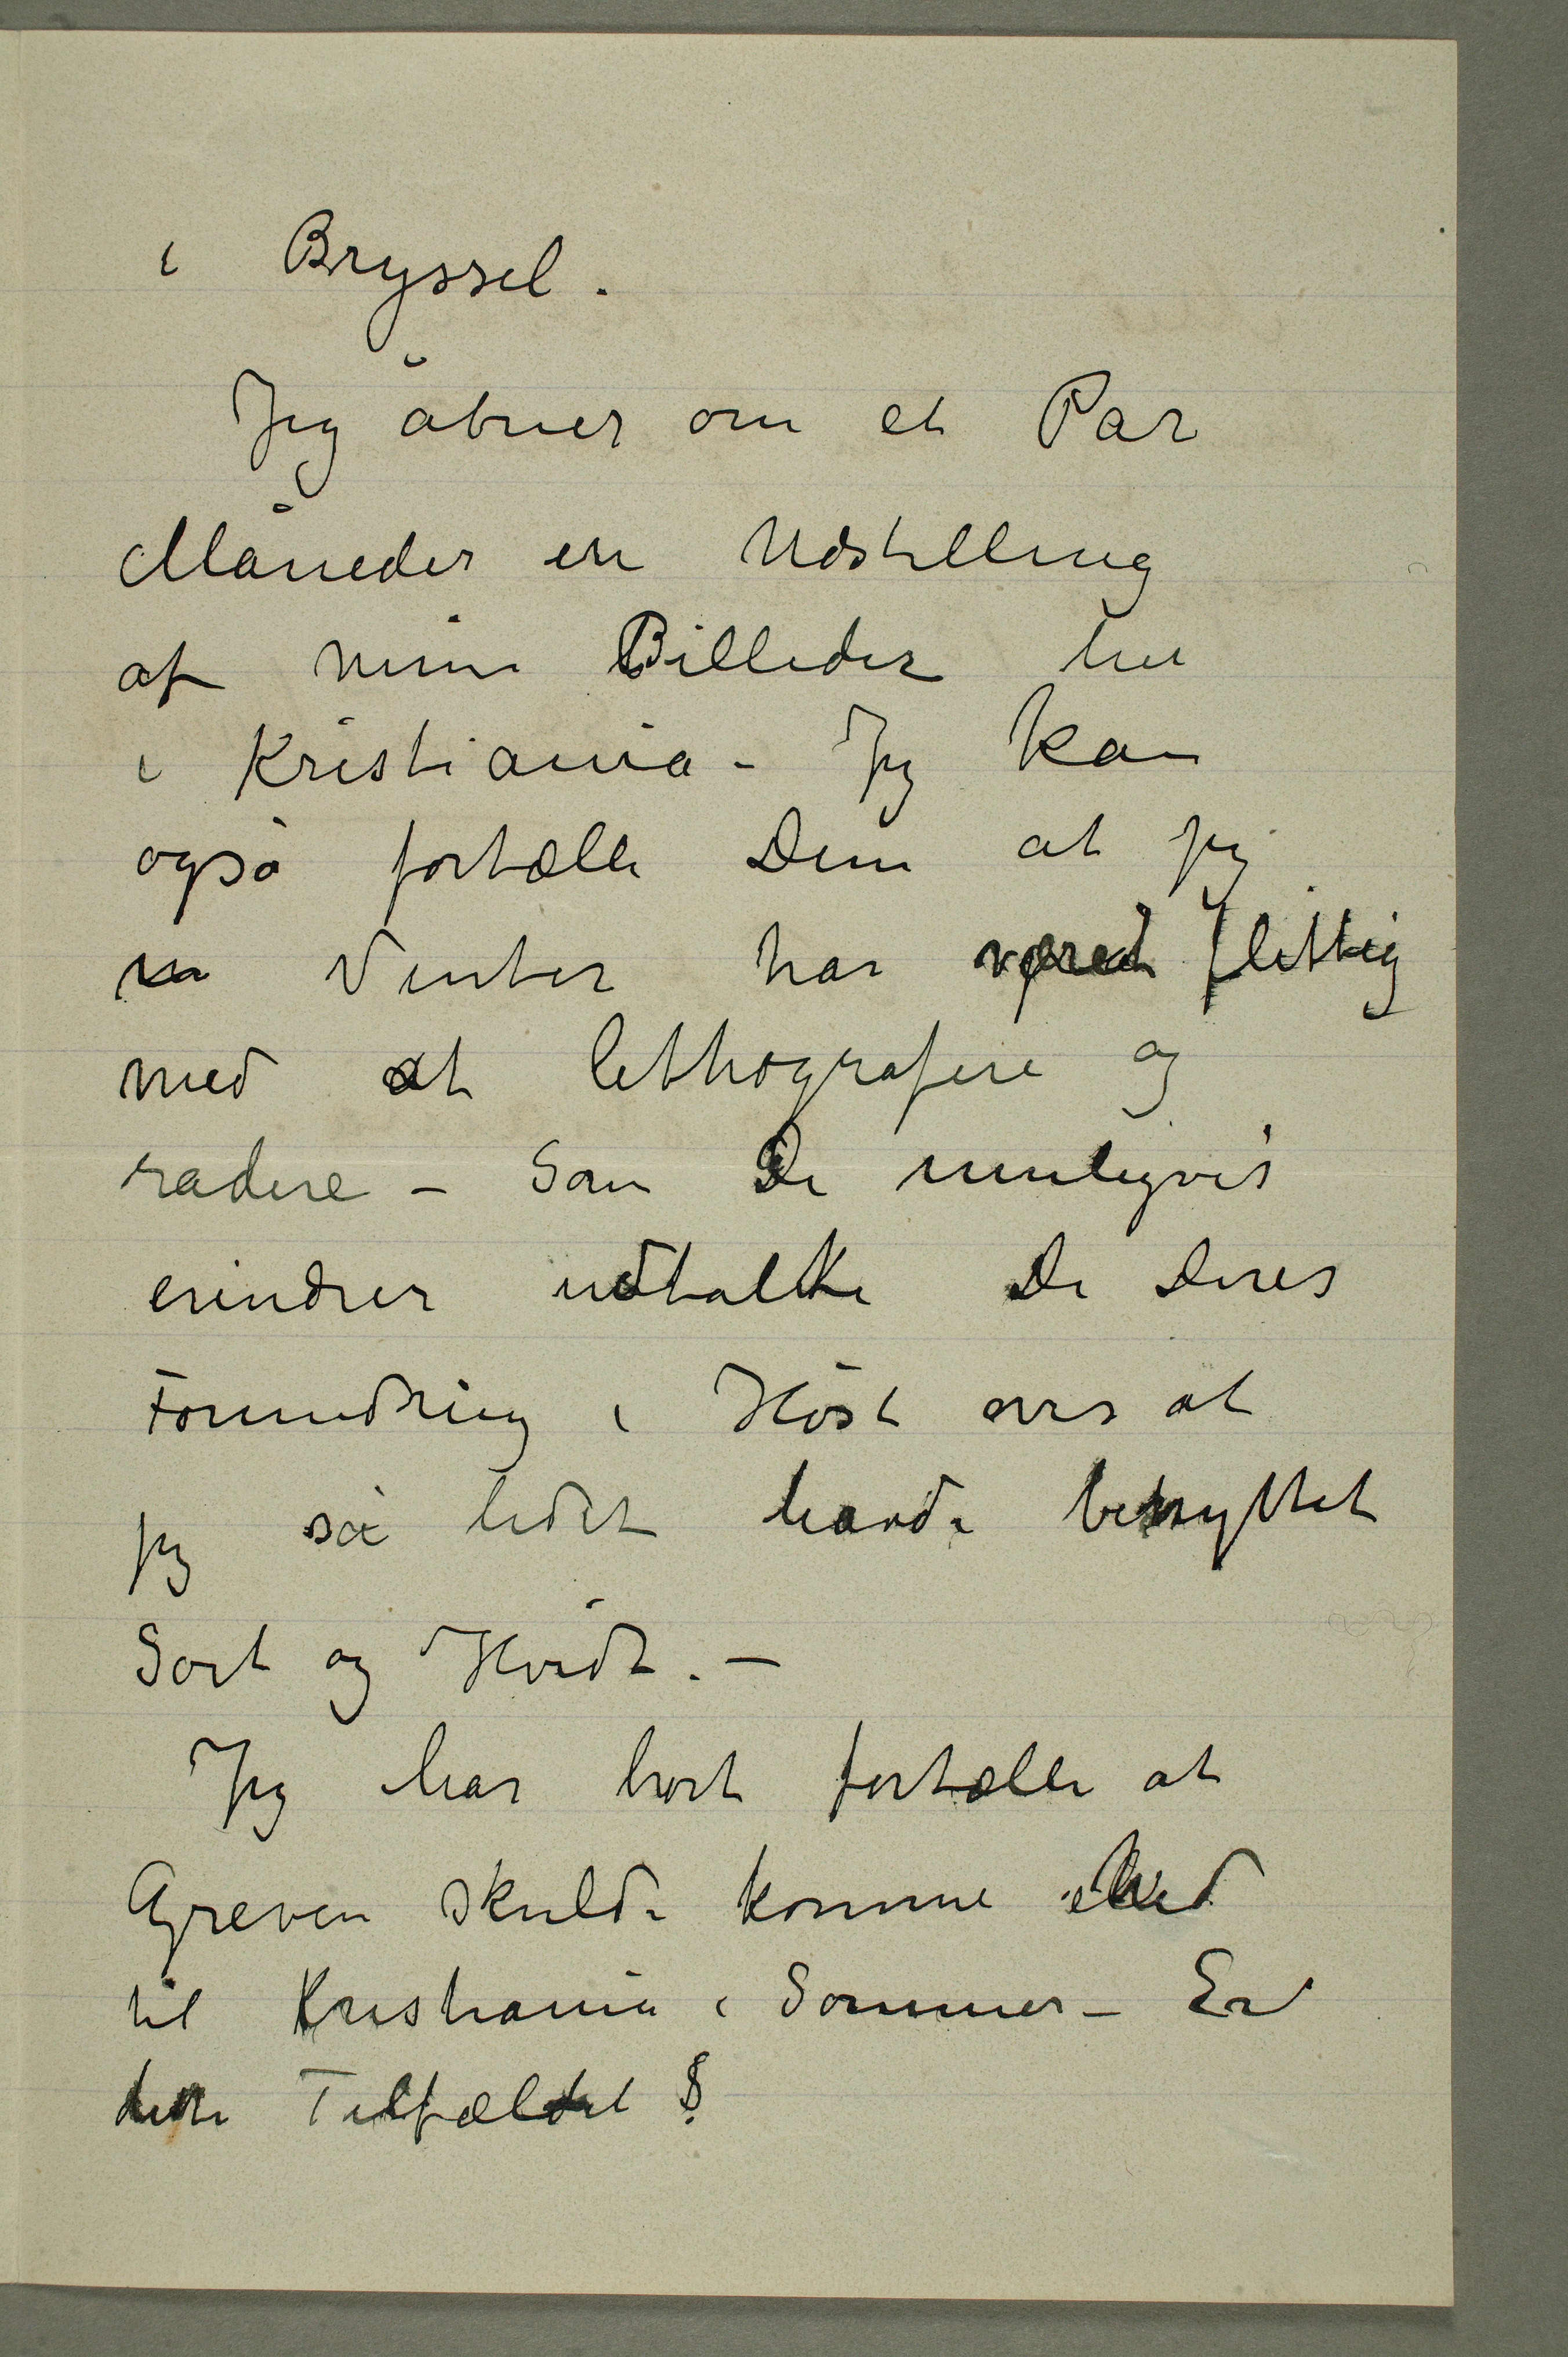 i Bryssel.
Jeg åbner om et Par
Måneder en Udstilling
af mine Billeder her
i Kristiania – Jeg kan
også fortælle Dem at jeg
Vinter har været flittig
med at lithografere og
radere – Som De muligvis
erindrer udtalte De Deres
Forundring i Høst over at
jeg så lidet havde benyttet
Sort og Hvidt. –
Jeg har hørt fortælle at
Greven skulde komme
til Kristiania i Sommer – Er
dette Tilfældet?